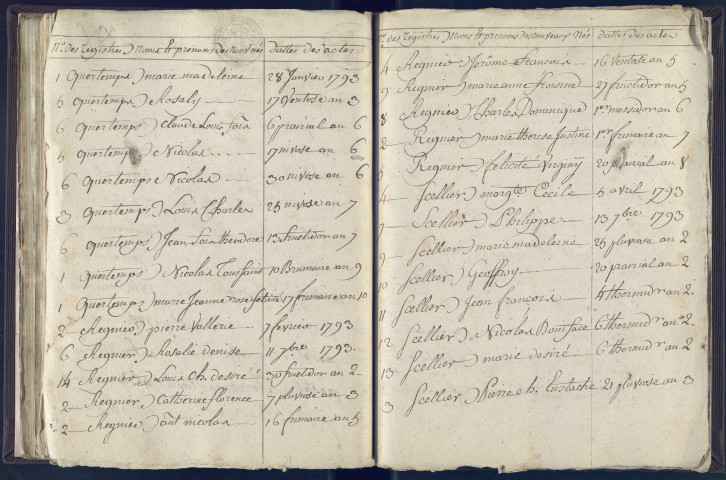 N.º des registres) Noms & prenoms des nouv. nés dattes des actes
1 Quertemps) marie madeleine 28 Janvier 1793
5 Quertemps) Rosaly 17 Ventose an 3
6 Quertemps) Claude Louis fois 6 prairial an 6
5 Quertemps) Nicolas 17 nivose an 6
6 Quertemps) Nicolas 30 nivose an 6
3 Quertemps) Louis Charles 25 nivose an 7
6 Quertemps) Jean fois theodore 13 fructidor an 7
1 Quertemps) Nicolas Toussaint 10 Brumaire an 9
1 Quertemps) marie Jeanne rose felicité 17 frimaire an 10
2 Regnier) pierre Vallerie 7 fevrier 1793
6 Regnier) Rosalie denise 11 7bre 1793
14 Regnier) Louis Ch. desiré 30 fructidor an 2
2 Regnier) Catherine florence 7 pluviose an 3
2 Regnier) ant nicolas 16 frimaire an 5
N.º des registres) Noms & prenoms des nouveaux Nés dattes des actes
4 Regnier) Jerôme francois 16 Ventose an 5
9 Regnier) marie anne 27 fructidor an 5
8 Regnier) Charles Dominique 1er messidor an 6
2 Regnier) marie therese Justine 1er frimaire an 7
5 Regnier) felicité Virginy 20 prairial an 8
4 Scellier) margte Cecile 5 avril 1793
7 Scellier) Philippe 13 7bre 1793
9 Scellier) marie madeleine 26 pluviose an 2
10 Scellier) Geoffroy 20 prairial an 2
11 Scellier) Jean françois 4 thermidr an 2
12 Scellier) Nicolas Boniface 6 thermidr an 2
13 Scellier) marie desiré 6 thermidr an 2
3 Scellier) Pierre h. Eustache 21 pluviose an 3